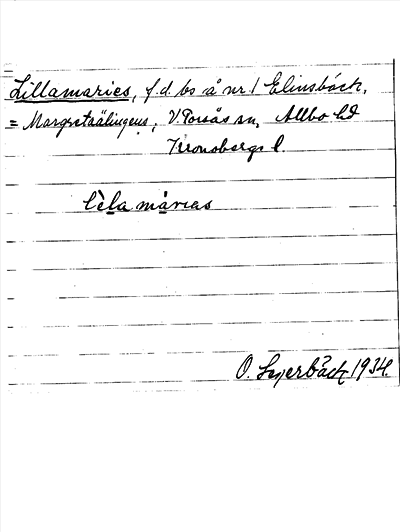 Lillamaries, f.d. bs å nr. 1 Elinsbäck,
= Margretaälingens, V. Torsås sn, Allbo hd
Kronobergs l.
lèla màrias
O. Lagerbäck 1934.